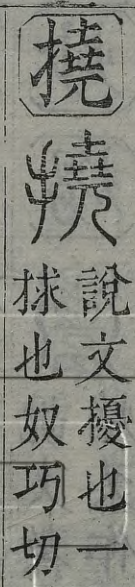 撓
撓
說文擾也一
捄也奴巧切